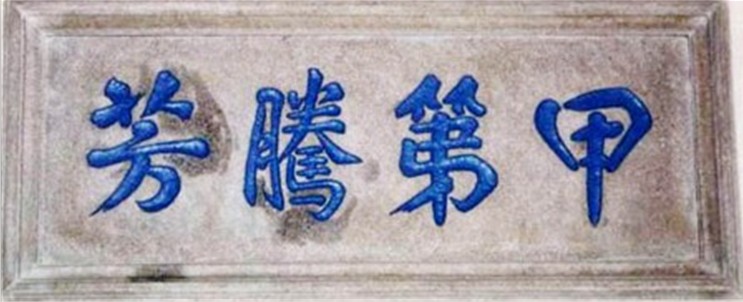 甲第騰芳